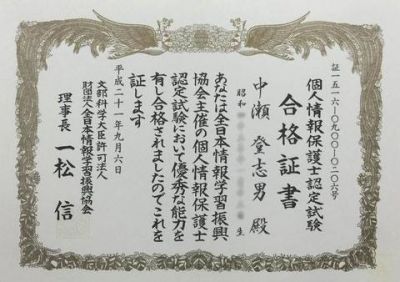 証一五一六-〇九〇〇-〇二〇六号
個人情報保護士認定試験
合格証書
中瀬登志男殿
昭和 生
あなたは全日本情報学習振興
協会主催の個人情報保護士
認定試験において優秀な能力を
有し合格されましたのでこれを
証します
平成二十一年九月六日
文部科学大臣許可法人
財団法人全日本情報学習振興協会
理事長 一松信